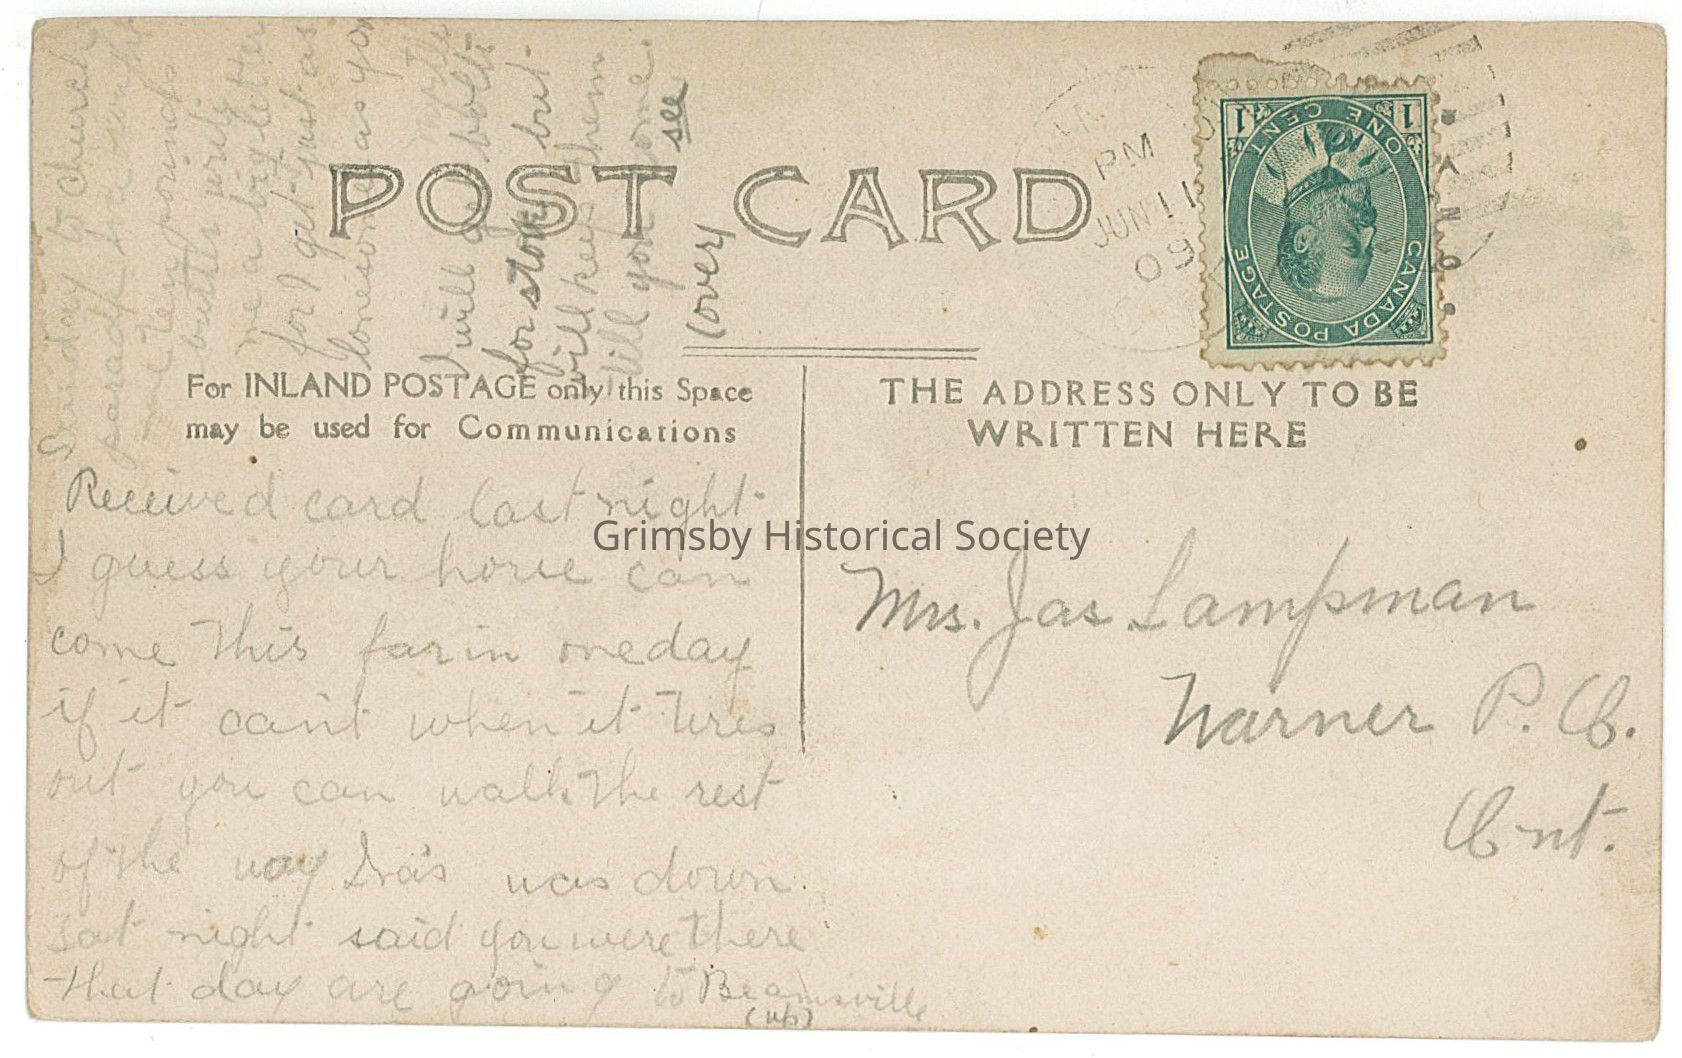 POST CARD
PM
JUN 11
09
CANADA POSTAGE
ONE CENT
1 1
For INLAND POSTAGE only this Space
may be used for Communications
THE ADDRESS ONLY TO BE
WRITTEN HERE
Received card last night.
I guess your horse can
come this far in one day
if it can't when it tires
out you can walk the rest
of the way Ira's was down.
sat night said you were there
that day are going to Beamsville
(up)
Sunday to church
parade
ten pounds
butter write
me a big letter
for I get just as
lonesome as you
I will be
for stove but
will keep them
till you come.
(over) see
Mrs. Jas Lampman
Warner P. O.
Ont.
Grimsby Historical Society